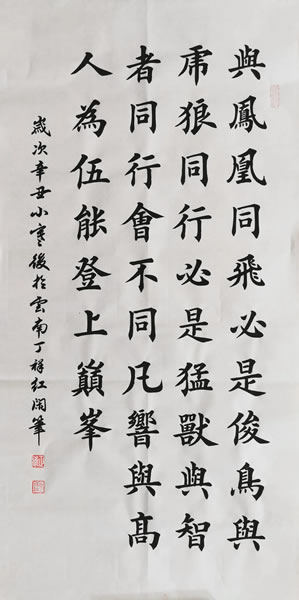 與鳳凰同飛必是俊鳥與
虎狼同行必是猛獸與智
者同行會不同凡響與高
人為伍能登上巔峯
歲次辛丑小寒後於雲南丁祥紅閑筆